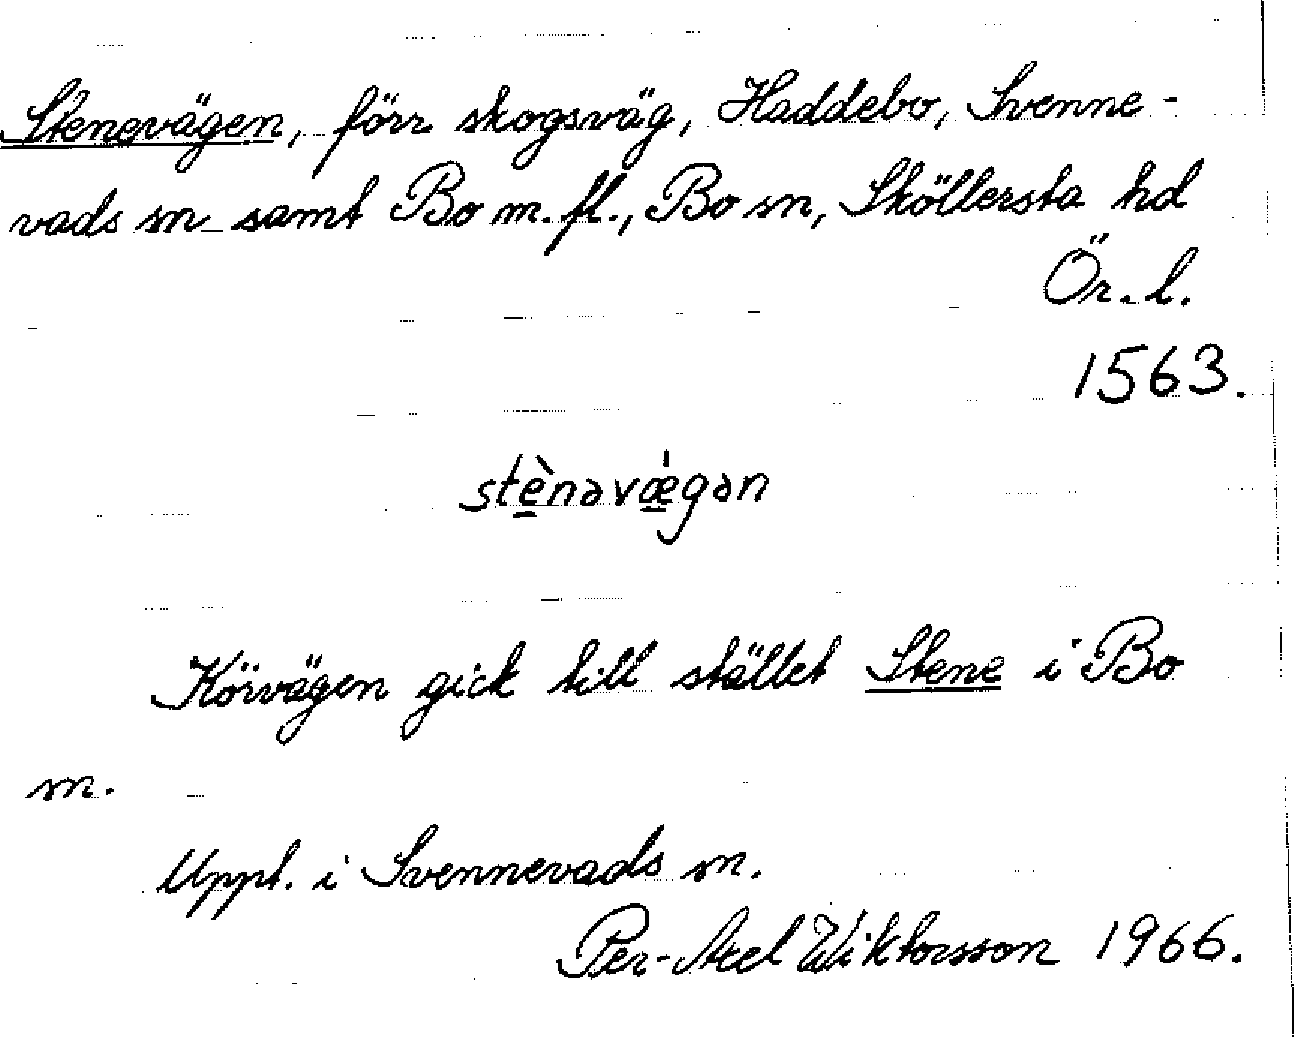 Stenevägen, förr skogsväg, Haddebo, Svenne-
vads sn samt Bo m.fl., Bo sn, Sköllersta hd
Ör. l.
1563.
stè̱nəvǽ̱gən
Körvägen gick till stället Stene i Bo
sn.
Uppt. i Svennevads sn.
Per-Axel Wiktorsson 1966.